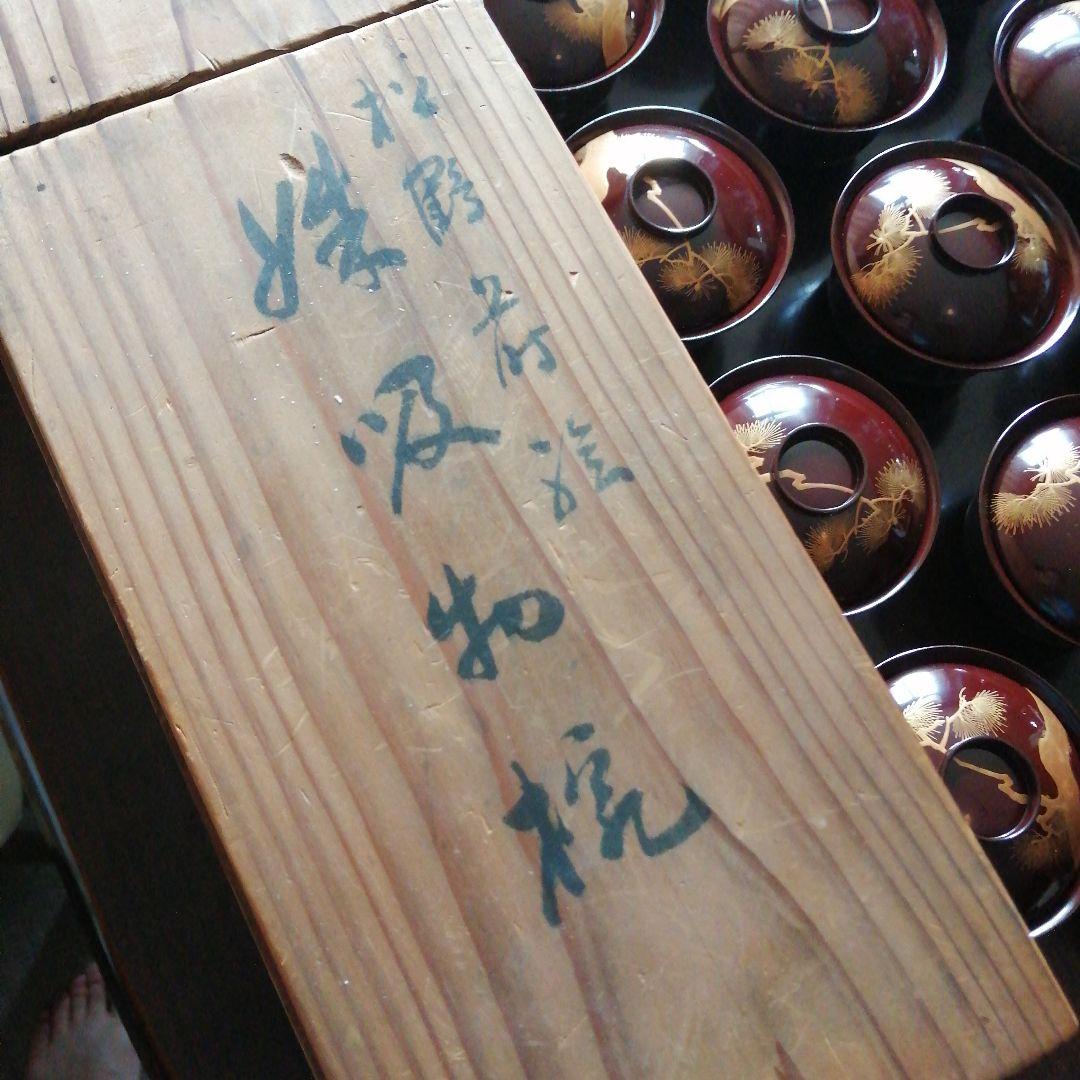 松鶴蒔絵
吸物椀